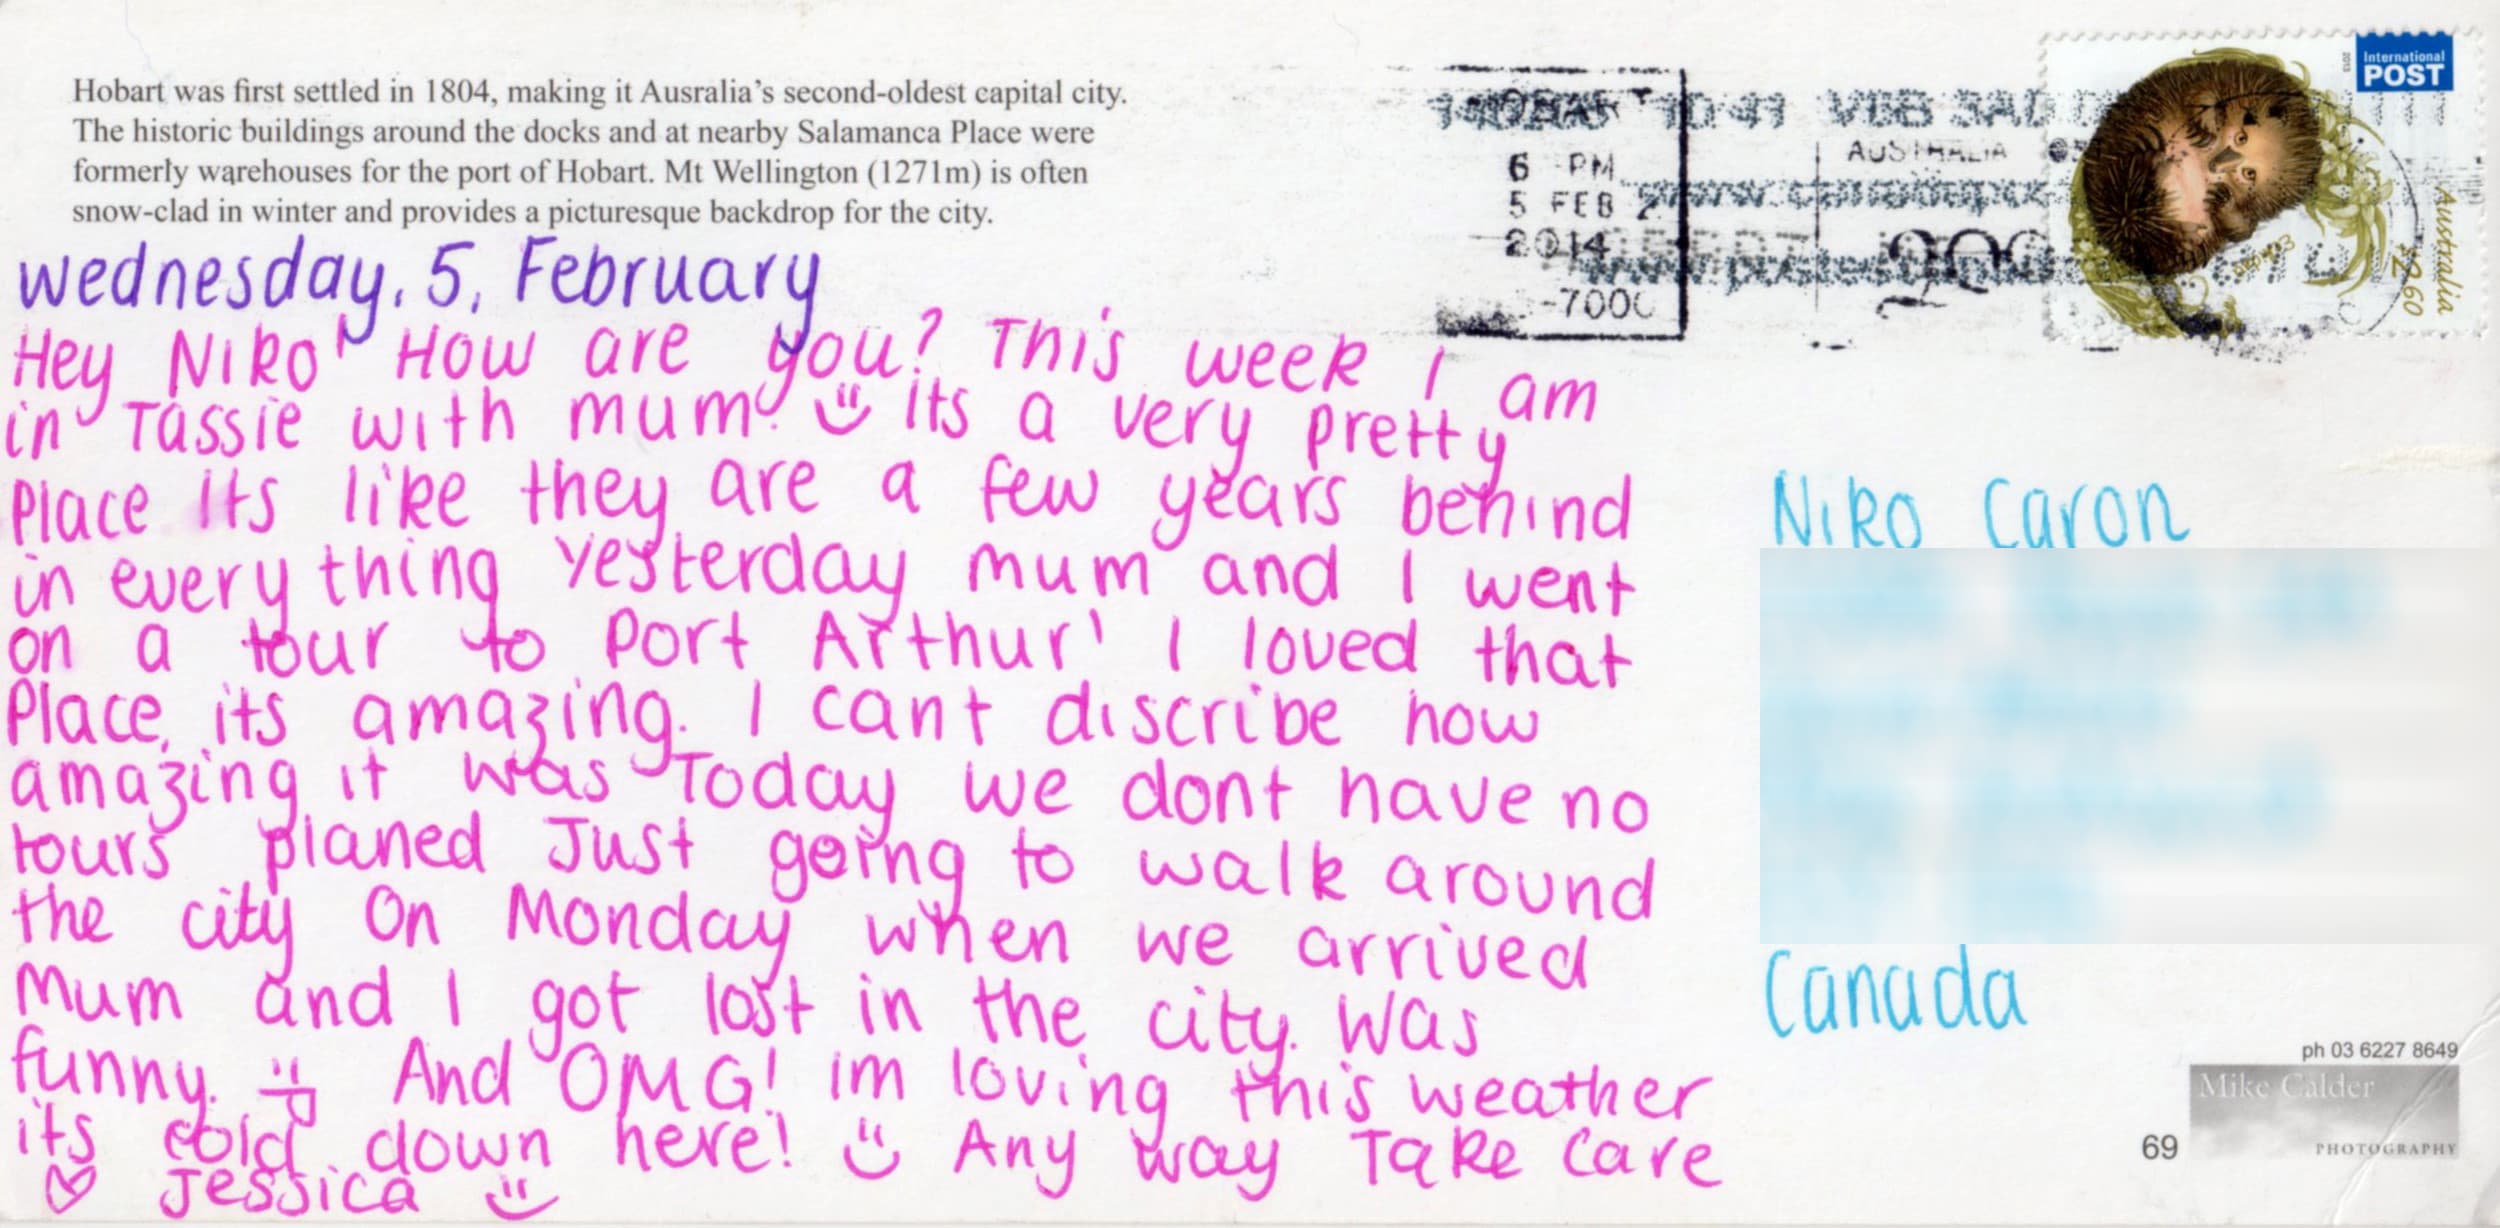 Hobart was first settled in 1804, making it Ausralia's second-oldest capital city.
The historic buildings around the docks and at nearby Salamanca Place were
formerly warehouses for the port of Hobart. Mt Wellington (1271m) is often
snow-clad in winter and provides a picturesque backdrop for the city.
6 PM
5 FEB
2014
-7000
AUSTRALIA
International
POST
2013
Australia
$2.60
wednesday, 5, February
Hey Niko! How are you? This week I am
in Tassie with mum! its a very pretty
Place its like they are a few years behind
in every thing yesterday mum and I went
on a tour to Port Arthur! I loved that
Place, its amazing. I cant discribe how
amazing it was Today we dont have no
tours planed Just going to walk around
the city On Monday when we arrived
Mum and I got lost in the city. Was
funny. =P And OMG! im loving this weather
its cold down here! Any way Take Care
♡ Jessica
Niko Caron
Canada
ph 03 6227 8649
Mike Calder
PHOTOGRAPHY
69